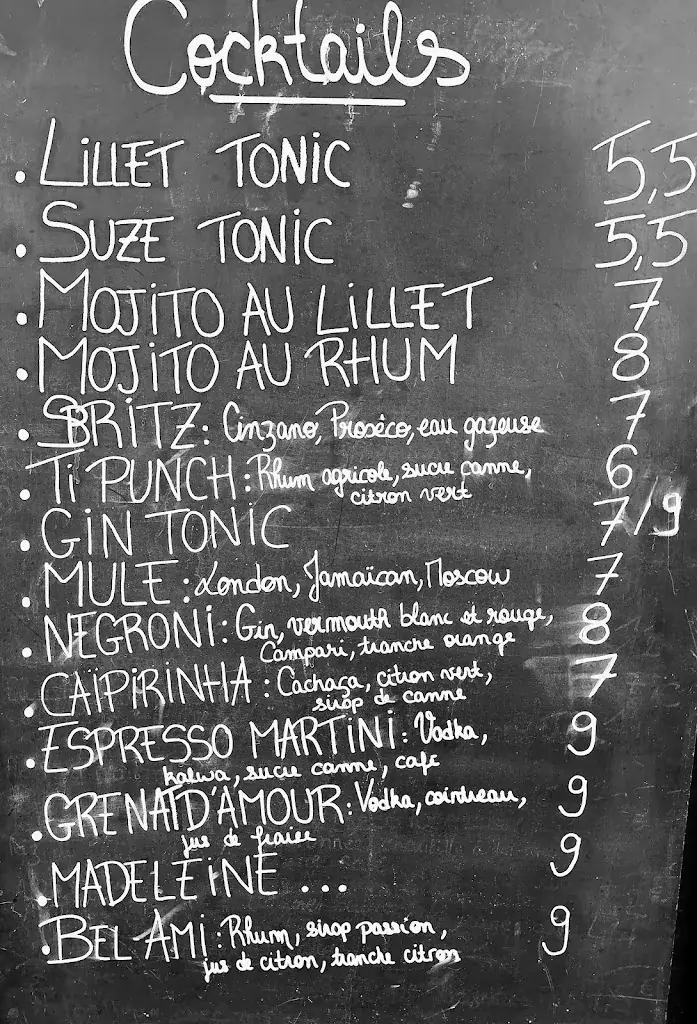 Cocktails
. LILLET TONIC 5,5
. SUZE TONIC 5,5
. MOJITO AU LILLET 7
. MOJITO AU RHUM 8
. SPRITZ: Cinzano, Proséco, eau gazeuse 7
. Ti PUNCH: Rhum agricole, sucre canne, 6
citron vert
. GIN TONIC 7/9
. MULE: London, Jamaïcan, Moscow 7
. NEGRONI: Gin, vermouth blanc et rouge, 8
Campari, tranche orange
. CAÏPIRINHA: Cachaça, citron vert, 7
sirop de canne
. ESPRESSO MARTINI: Vodka, 9
kalwa, sucre canne, café
. GRENAT D'AMOUR: Vodka, cointreau, 9
jus de fraise
. MADELEINE ... 9
. BEL AMI: Rhum, sirop passion, 9
jus de citron, tranche citron